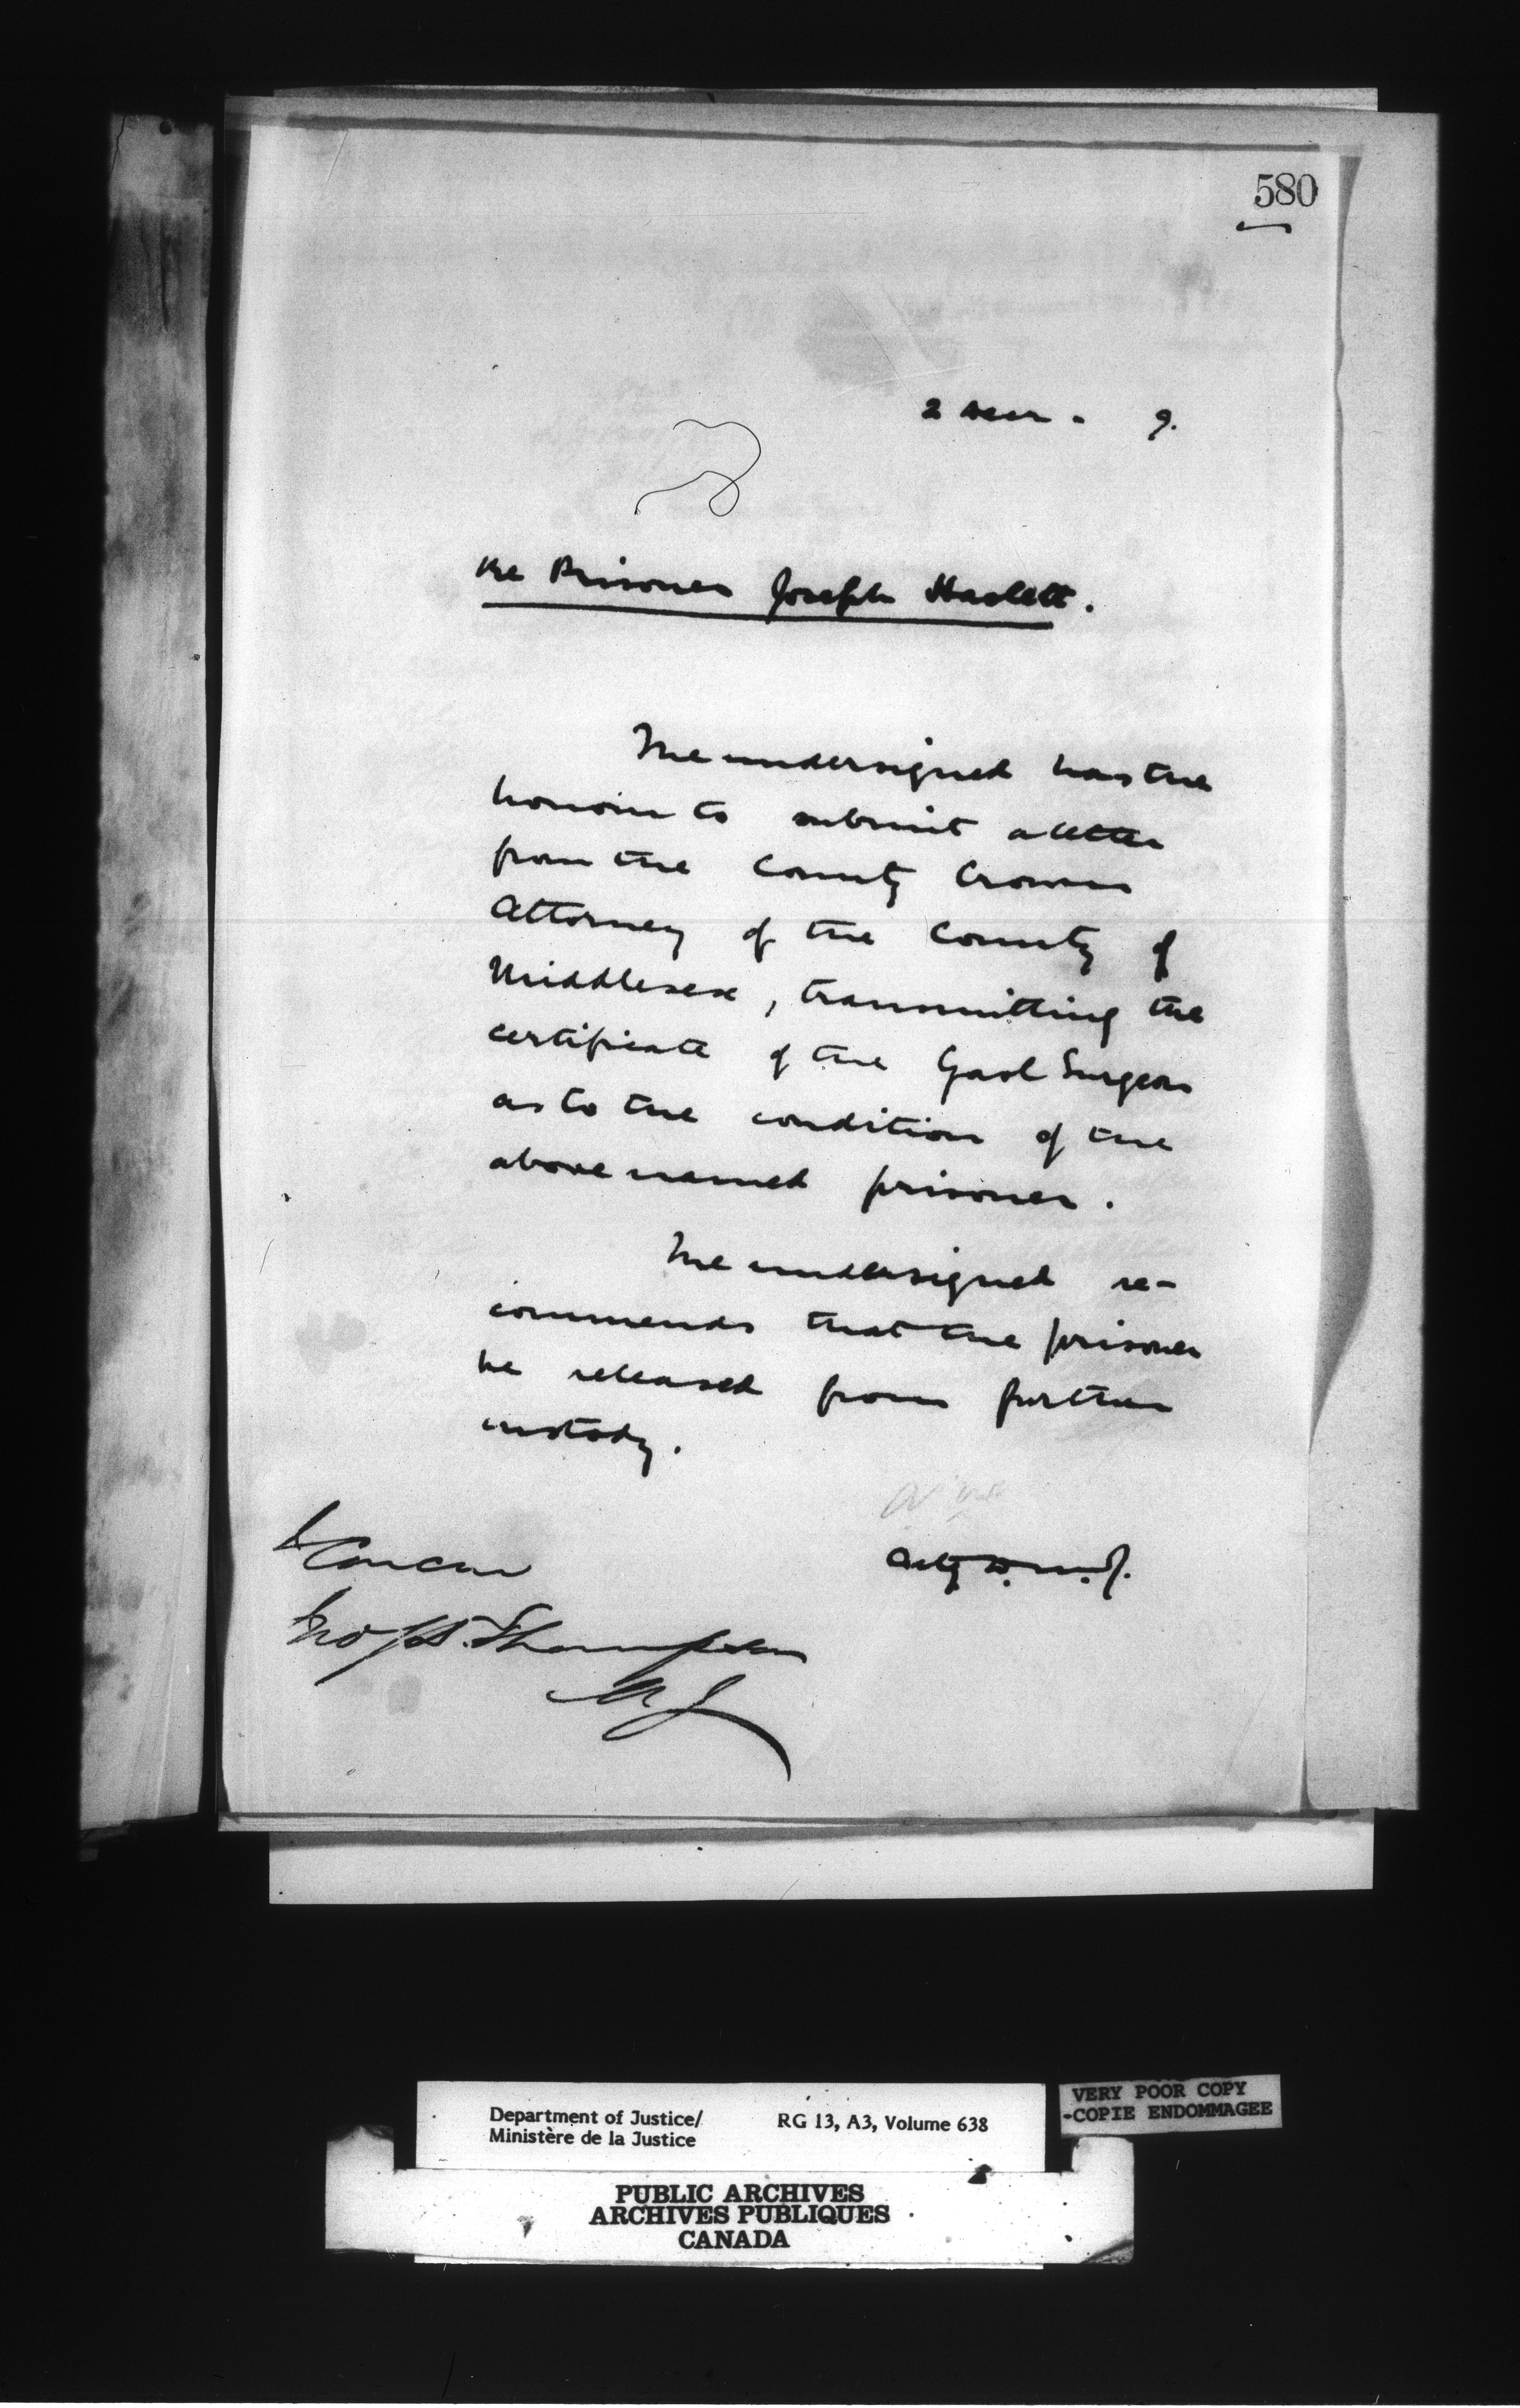 580
2 Decr - 9.
Re Prisoner Joseph Haslett.
The undersigned has the
honour to submit a letter
from the County Crown
Attorney of the County of
Middlesex, transmitting the
certificate of the Gaol Surgeon
as to the condition of the
above named prisoner.
The undersigned re-
commends that the prisoner
be released from further
custody.
I Concur
Actg D.M.J.
Jno S.D. Thompson
MJ
Department of Justice/ RG 13, A3, Volume 638
Ministère de la Justice
VERY POOR COPY
-COPIE ENDOMMAGEE
PUBLIC ARCHIVES
ARCHIVES PUBLIQUES
CANADA